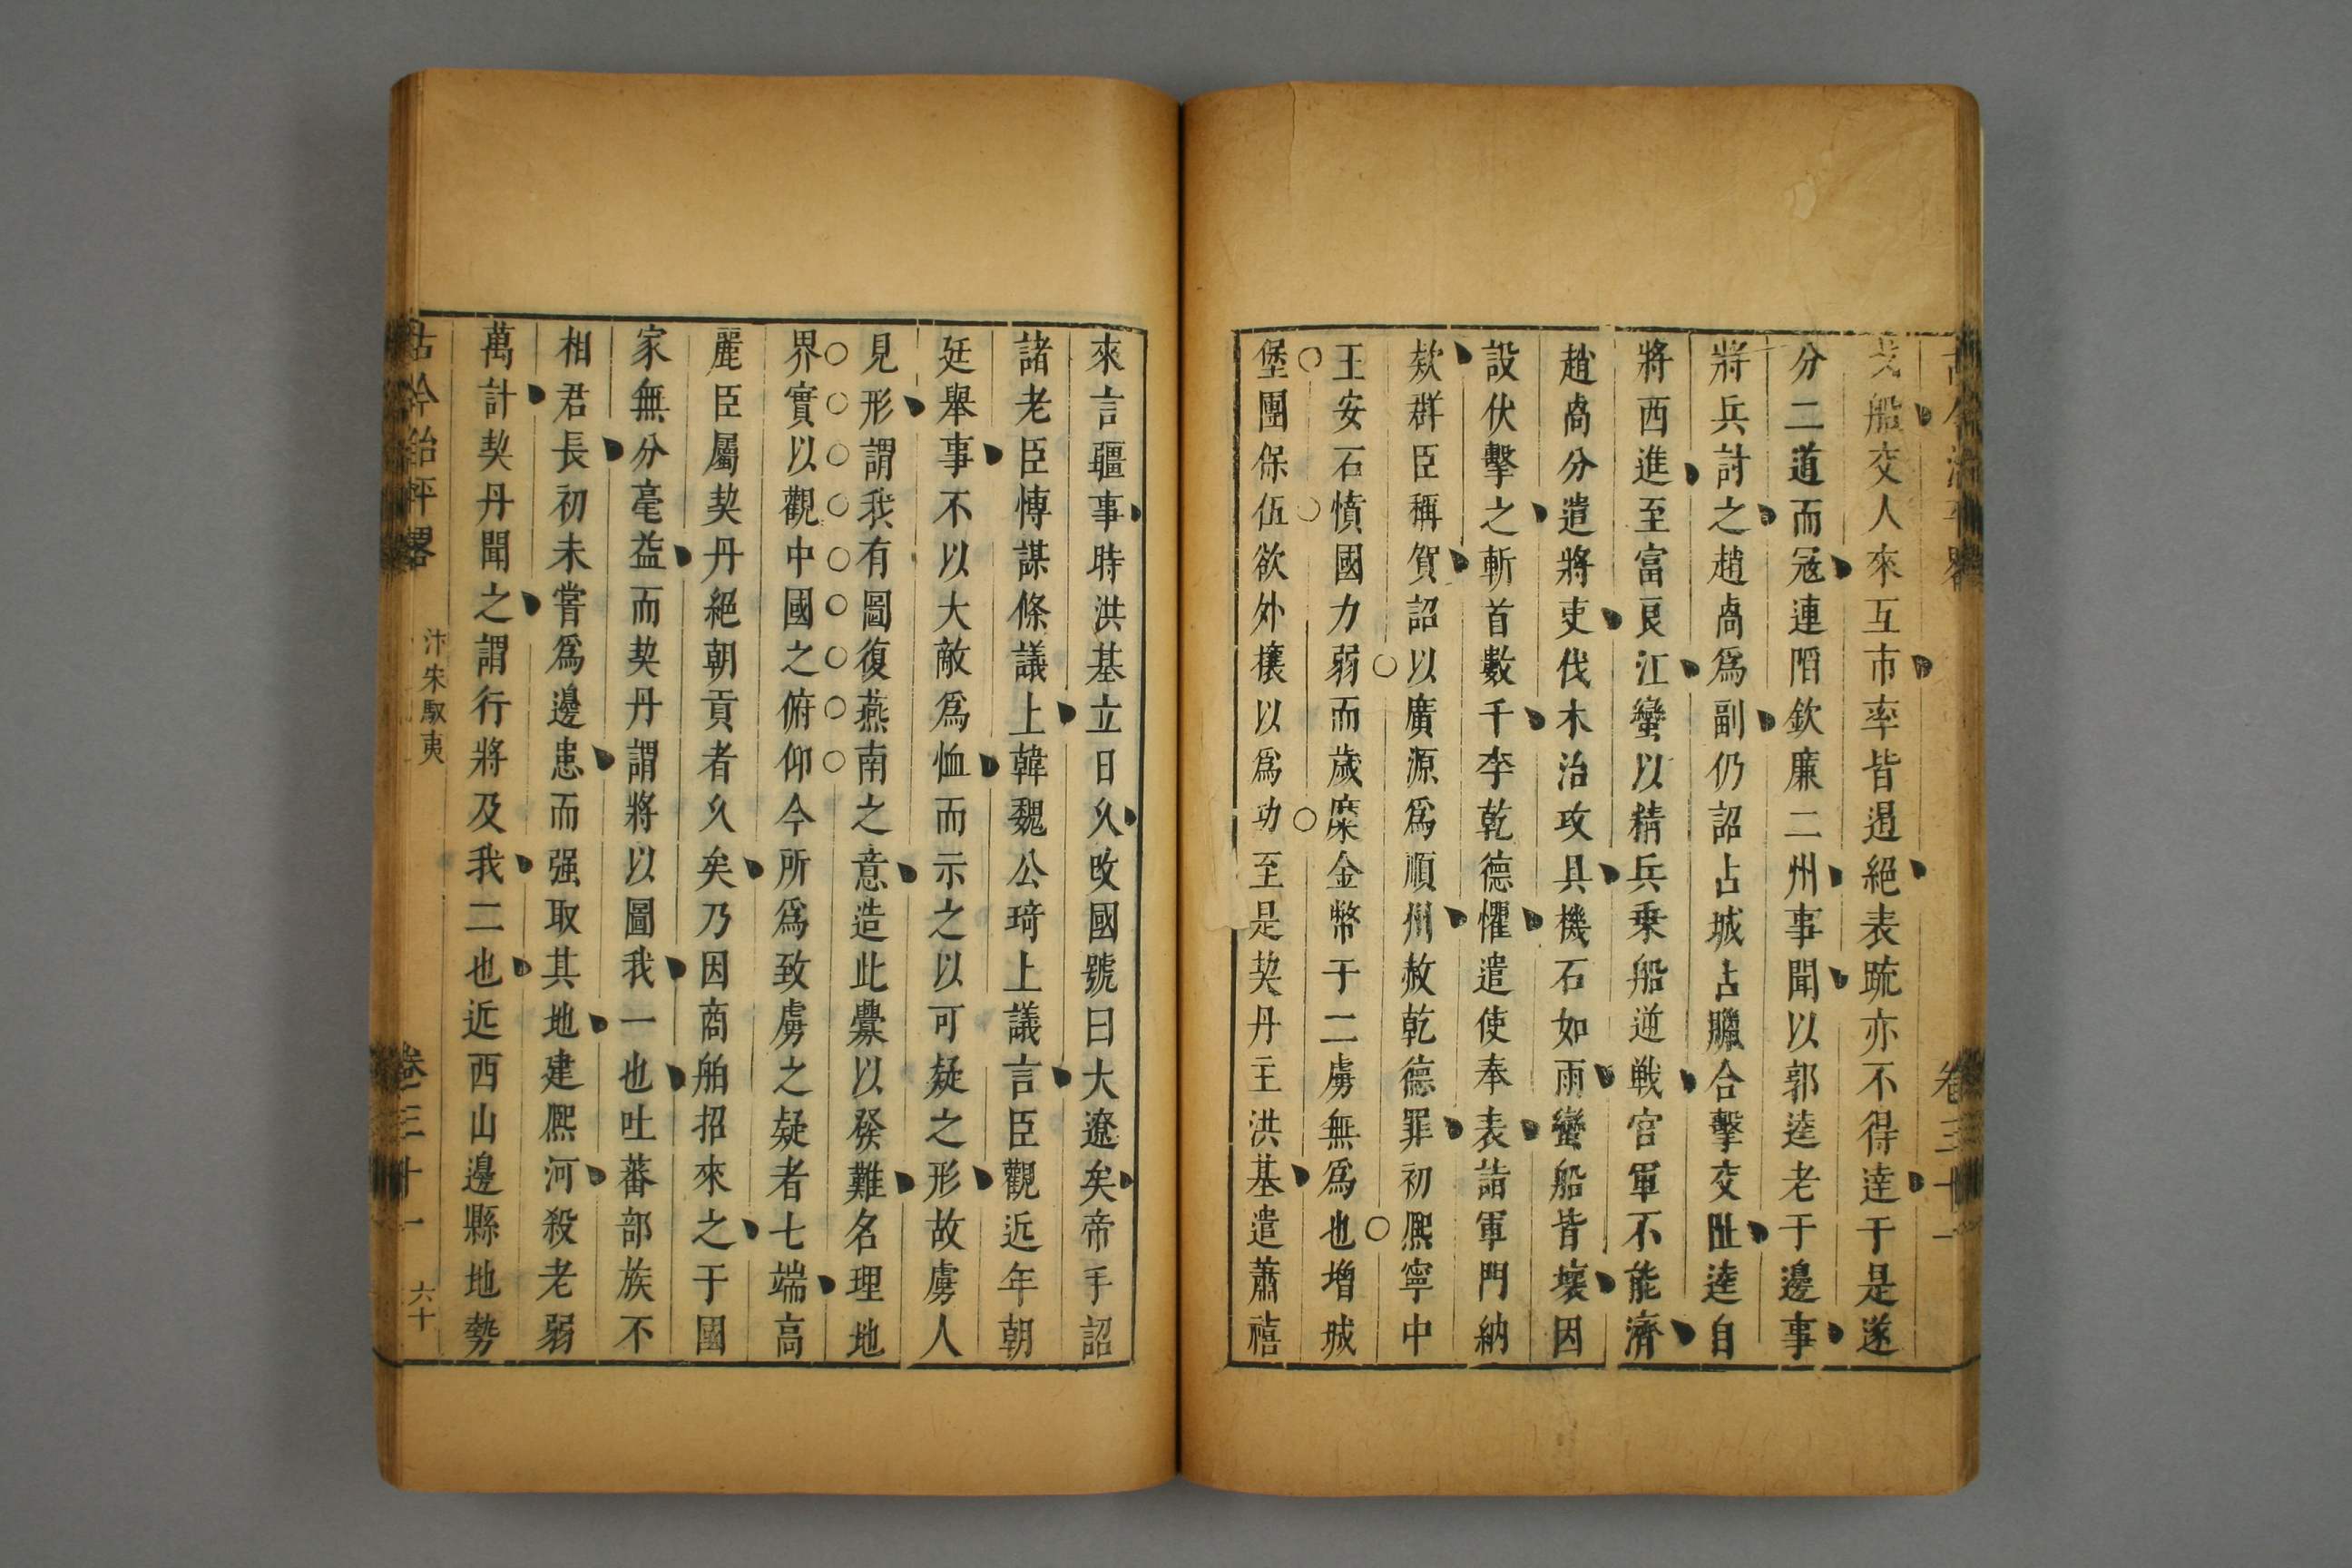 船交人來互市率皆遏絕表疏亦不得達于是遂
分二道而冦連陷欽廉二州事聞以郭逵老于邊事
將兵討之趙卨爲副仍詔占城占臘合擊交趾逵自
將西進至富良江蠻以精兵乗船逆戰官軍不能濟
趙卨分遣將吏伐木治攻具機石如雨蠻船皆壞因
設伏擊之斬首數千李乾德懼遣使奉表詣軍門納
欵群臣稱賀詔以廣源爲順州赦乾德罪初熈寧中
王安石憤國力弱而歲糜金幣于二虜無爲也增城
堡團保伍欲外攘以爲功至是契丹主洪基遣蕭禧
卷三十一
來言疆事時洪基立日久改國號曰大遼矣帝手詔
諸老臣愽謀條議上韓魏公琦上議言臣觀近年朝
廷舉事不以大敵爲恤而示之以可疑之形故虜人
見形謂我有圖復燕南之意造此釁以發難名理地
界實以觀中國之俯仰今所爲致虜之疑者七端高
麗臣屬契丹絕朝貢者久矣乃因商舶招來之于國
家無分毫益而契丹謂將以圖我一也吐蕃部族不
相君長初未嘗爲邊患而强取其地建熈河殺老弱
萬計契丹聞之謂行將及我二也近西山邊縣地勢
古今治平畧 汴朱馭夷 卷三十一 六十